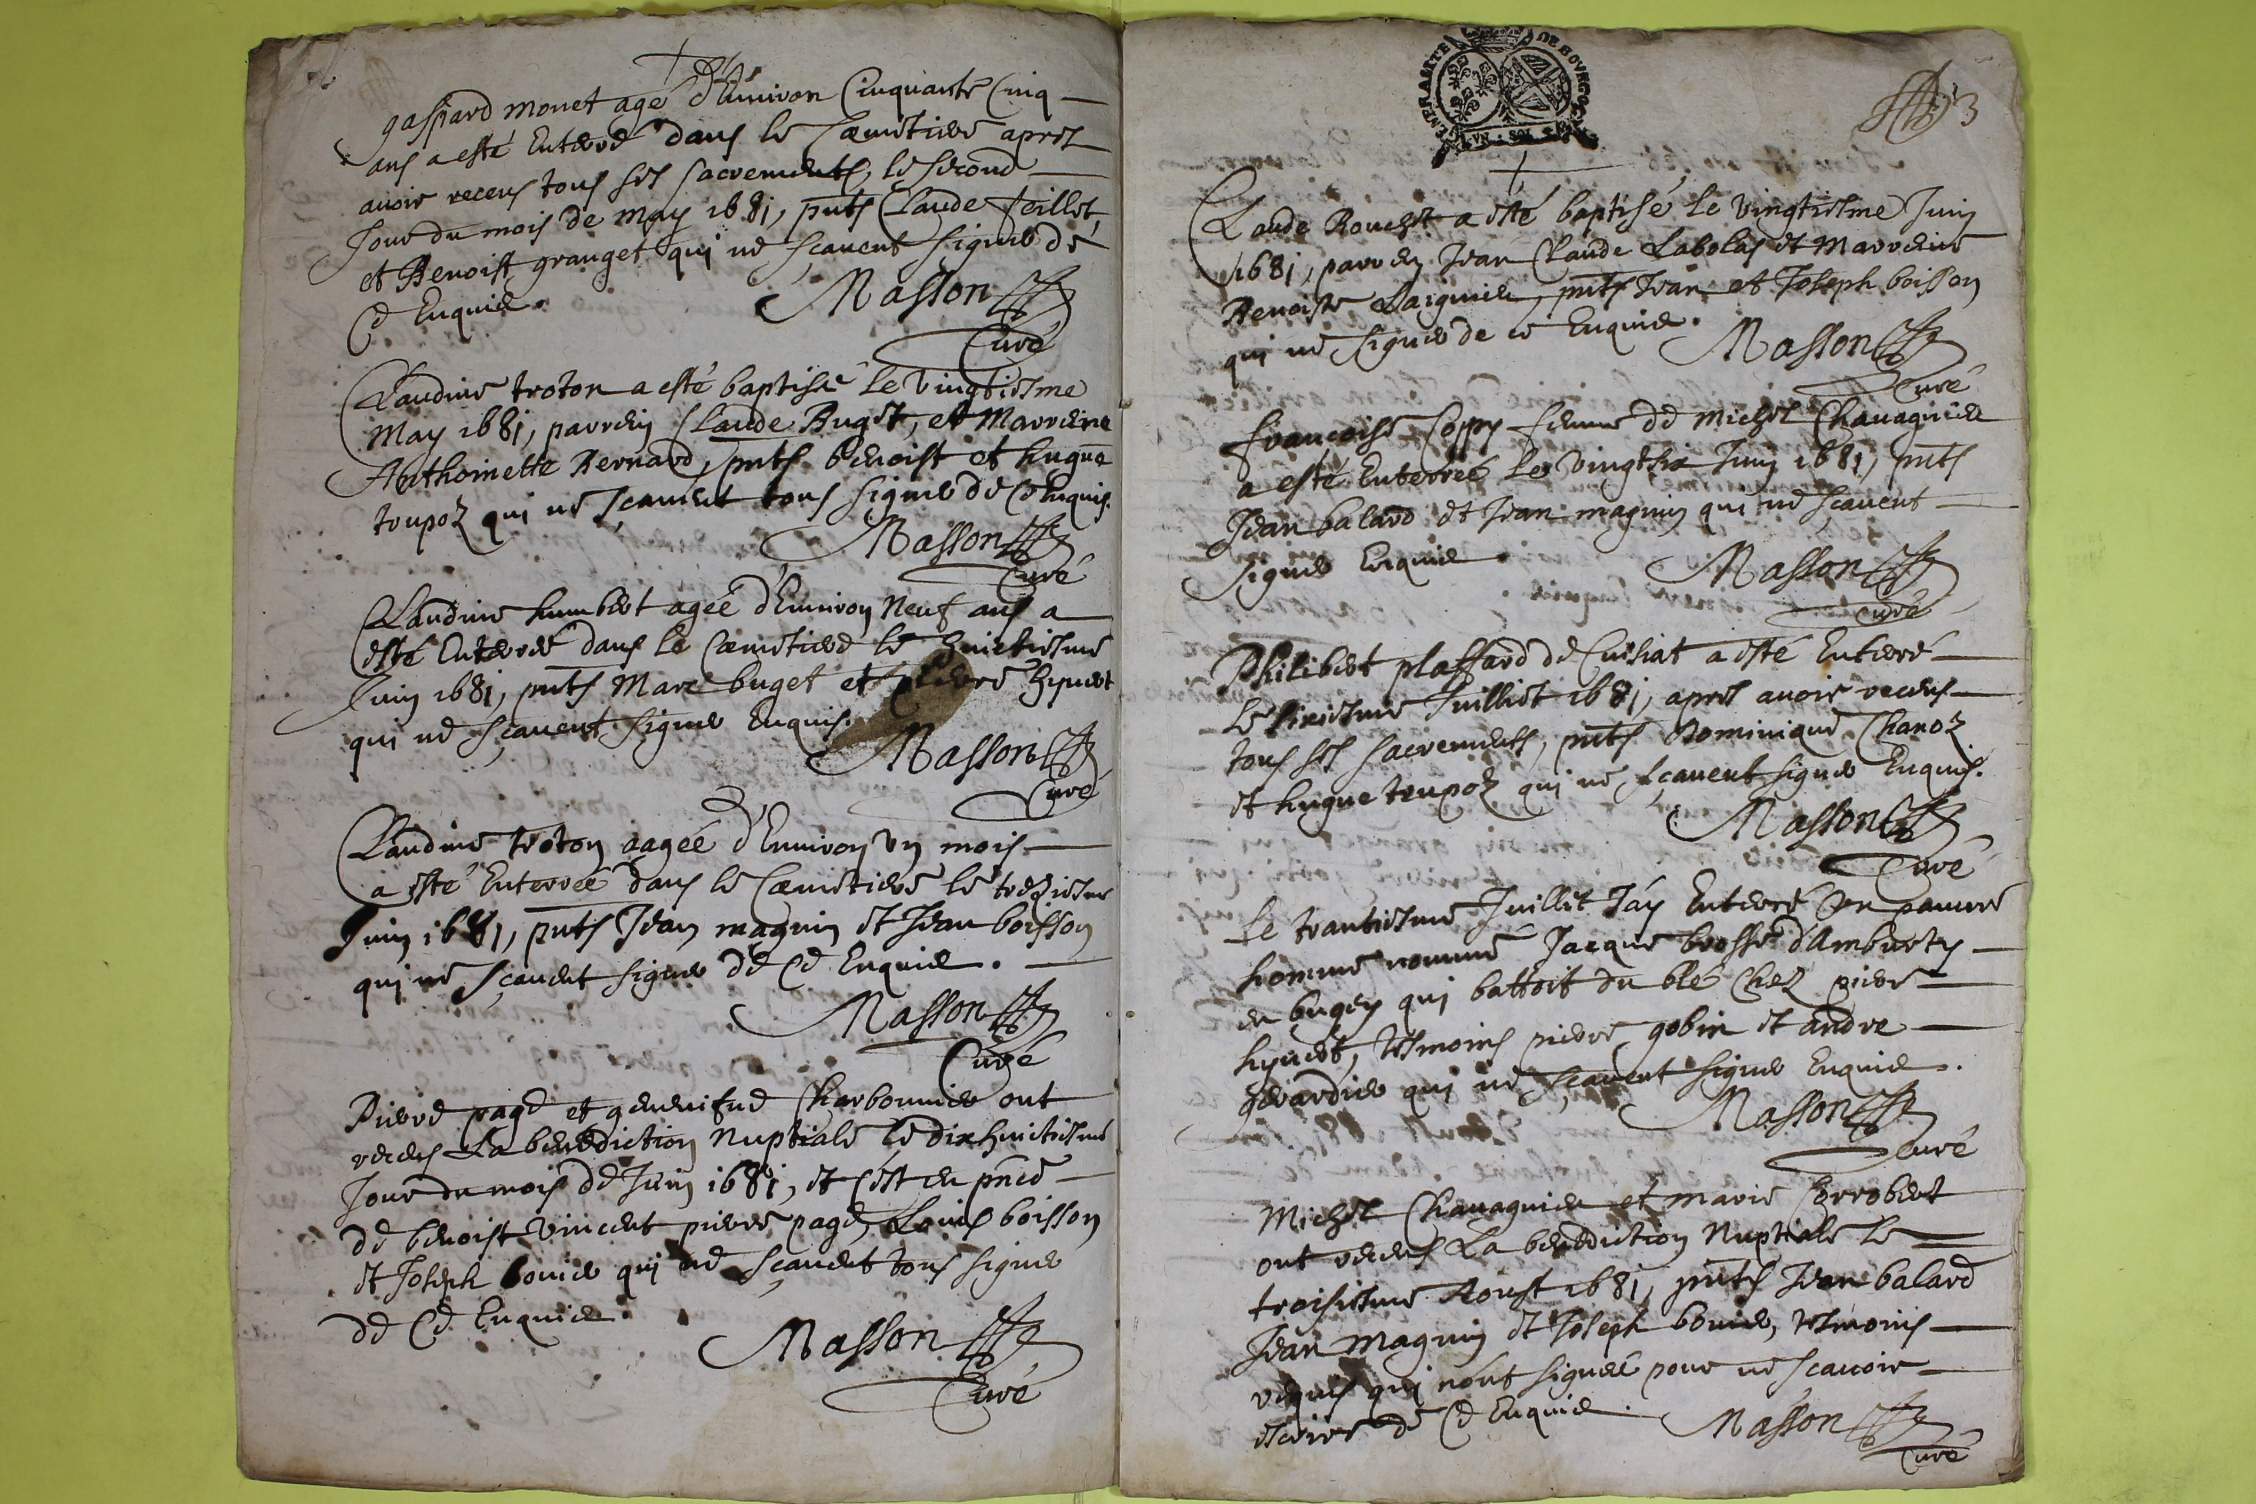 gaspard monet agé d'Enuiron Cinquante Cinq
ans a esté Enterré dans le Cœmetiere apres
auoir receus tous ses sacrements, le second
Jour du mois de may 1681, pnts Claude feillet
et Benoist granget qui ne sçauent signer de
Ce Enquis.
Masson
Curé
Claudine troton a esté baptisée le Vingtiesme
May 1681, parrein Claude Buget, et Marreine
Anthoinette Bernard, pnts benoist et hugue
toupoz qui ne sçauent tous signer de Ce Enquis.
Masson
Curé
Claudine humbert agée d'Enuiron Neuf ans a
esté Enterreé dans le Cœmetiere le huictiesme
Juin 1681, pnts Marc buget et pierre hyuert
qui ne sçauent signer Enquis.
Masson
Curé
Claudine troton aagée d'Enuiron Vn mois
a esté Enterreé dans le Cœmetiere le treziesme
Juin 1681, pnts Jean magnin et Jean boisson
qui ne sçauent signer de Ce Enquis.
Masson
Curé
Pierre page et geneuifue Charbonnier ont
receus La benediction Nuptiale le dixhuictiesme
Jour du mois de Juin 1681, et C'est en pnce
de benoist Vincent pierre page, Louis boisson
et Joseph bouier qui ne sçauent tous signer
de Ce Enquis.
Masson
Curé
GENERALITE DE BOURGOGNE
VN SOL
3
Claude Rouchet a esté baptisé le Vingtiesme Juin
1681, parrein Jean Claude Labolas et Marreine
Benoiste, pnts Jean et Joseph boisson
qui ne signer de ce Enquis.
Masson
Curé
françoise Coppy femme de Michel Chauagnieu
a esté Enterreé le Vingtsix Juin 1681, pnts
Jean balard et Jean magnin qui ne sçauent
signer Enquis.
Masson
Curé
Philibert plaffard de Cuisiat a esté Enterré
le sixiesme Juilliet 1681, apres auoir receus
tous ses sacrements, pnts Dominique Chanoz
et hugue toupoz qui ne sçauent signer Enquis.
Masson
Curé
Le trantiesme Juillet J'ay Enterré Vn pauure
homme nommé Jacque brosse d'Amburty
en bugey qui battoit du blé Chez pierre
hyuert, tesmoins pierre gobin et andre
gerardier qui ne sçauent signer Enquis.
Masson
Curé
Michel Chauagnieu et marie Corrobert
ont receus La benediction Nuptiale le
troisiesme Aoust 1681, pnts Jean balard
Jean Magnin et Joseph bouier, tesmoins
requis qui n'ont signeé pour ne scauoir
escrire de Ce Enquis.
Masson
Curé